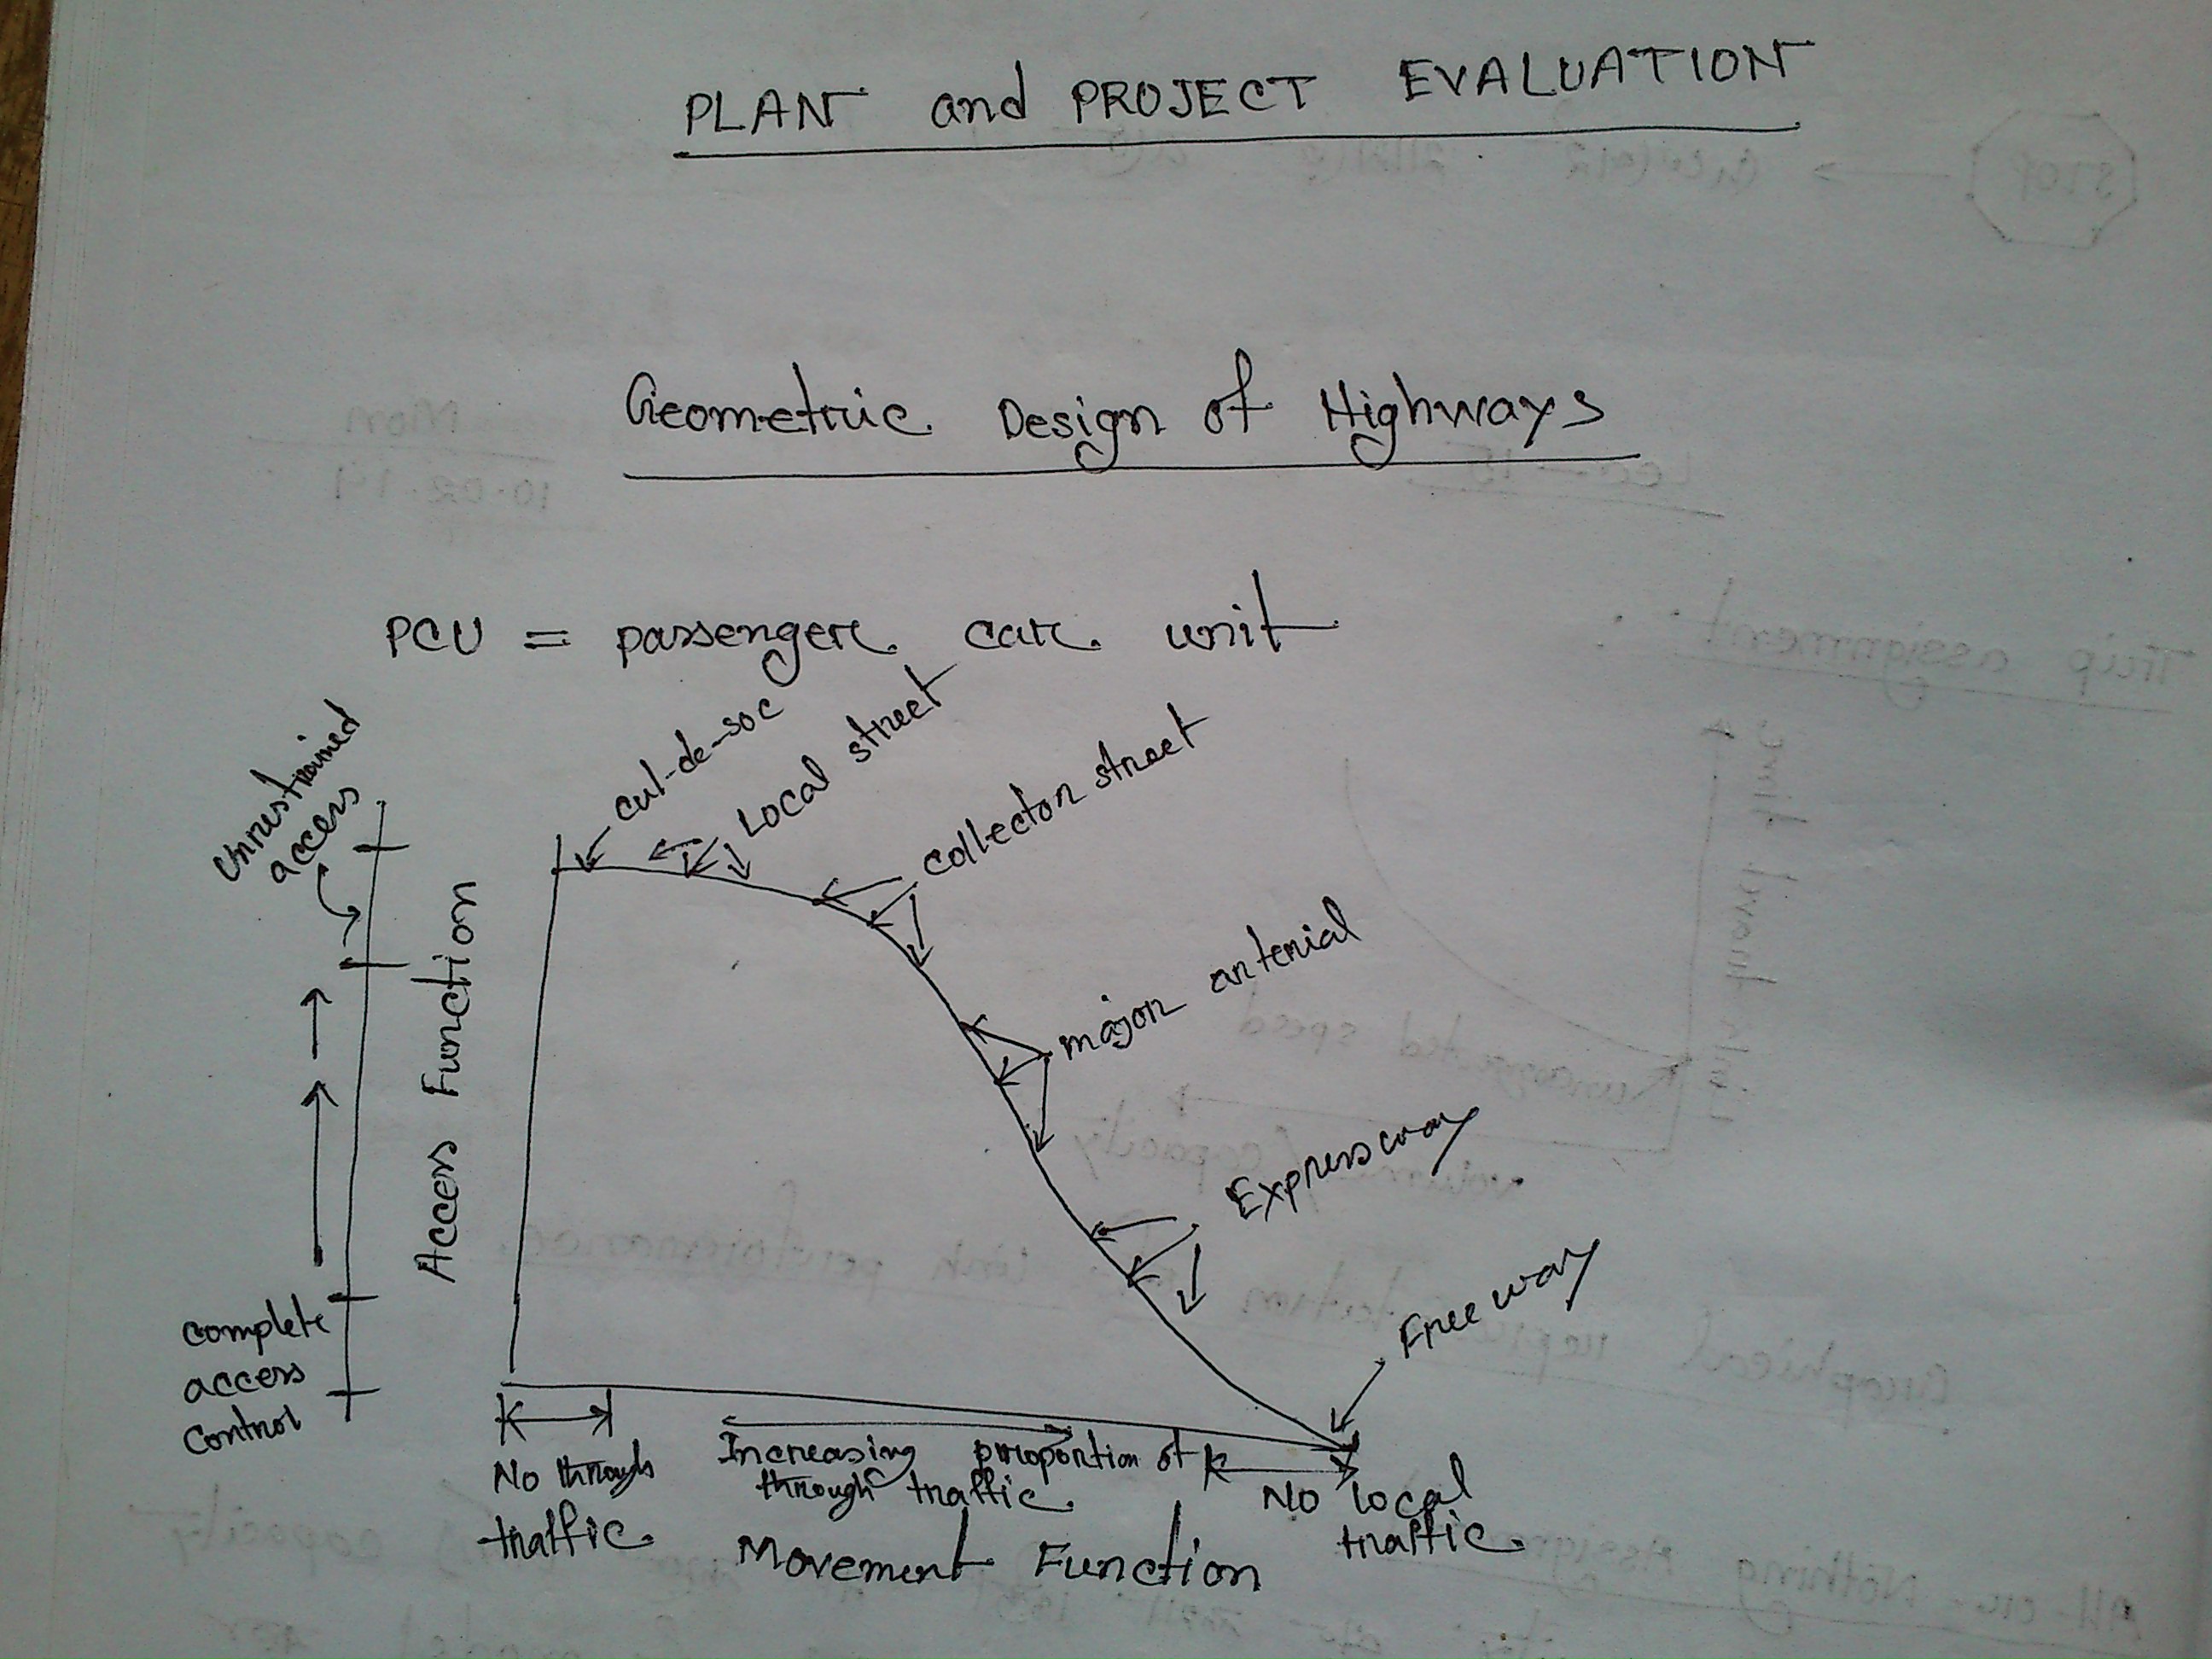 PLAN and PROJECT EVALUATION
Geometric Design of Highways
PCU = passenger car unit
cul-de-soc
Local street
collector street
major arterial
Expressway
Free way
Unrestrained
access
Access Function
complete
access
control
No through
traffic
Increasing proportion of
through traffic
No local
traffic
Movement Function